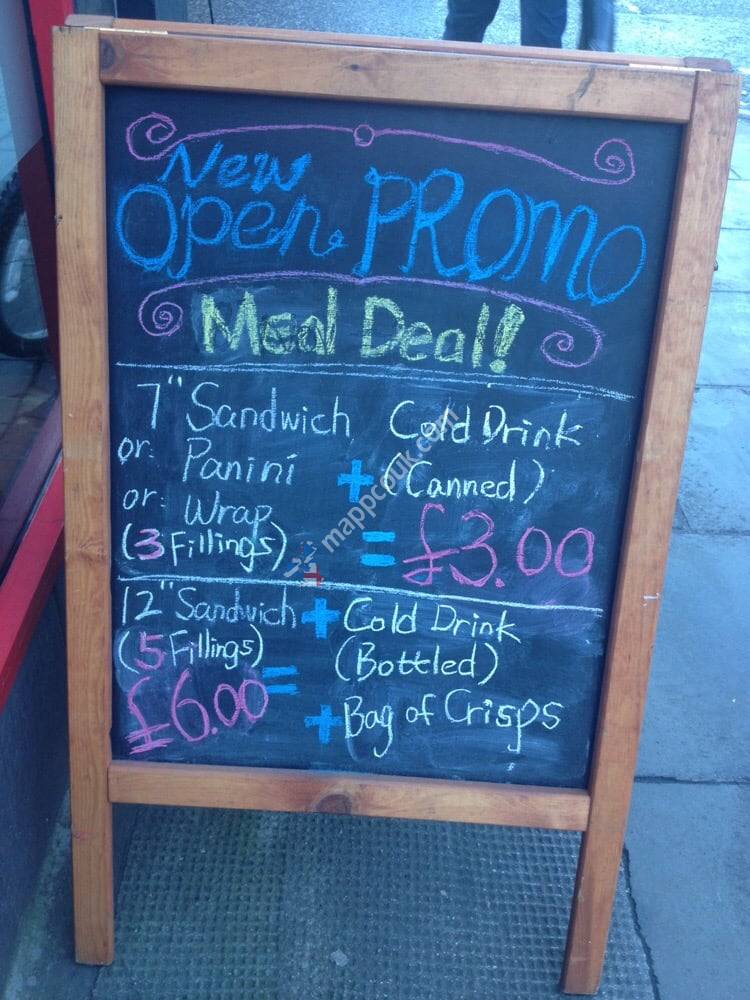 New
Open PROMO
Meal Deal!
7" Sandwich
or: Panini
or: Wrap
(3 Fillings)
+
Cold Drink
(Canned)
= £3.00
12" Sandwich
(5 Fillings)
+ Cold Drink
(Bottled)
+ Bag of Crisps
= £6.00
mappcouk.com